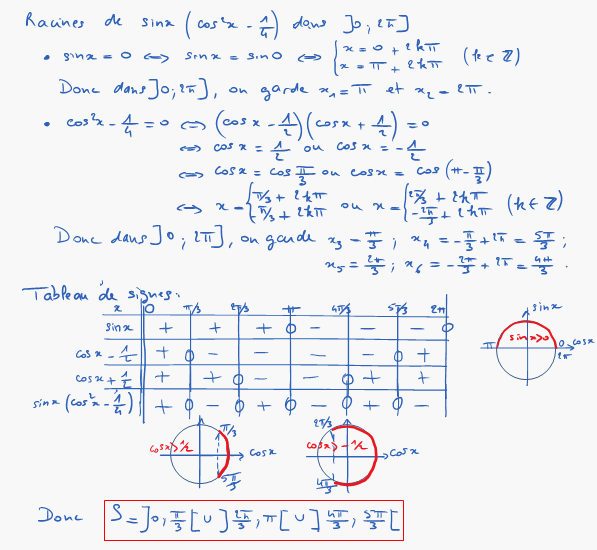 Racines de sinx (cos²x - 1/4) dans ]0 ; 2π]
• sinx = 0 ⟺ sinx = sin0 ⟺ { x = 0 + 2kπ
x = π + 2kπ (k ∈ ℤ)
Donc dans ]0 ; 2π], on garde x₁ = π et x₂ = 2π.
• cos²x - 1/4 = 0 ⟺ (cosx - 1/2)(cosx + 1/2) = 0
⟺ cosx = 1/2 ou cosx = -1/2
⟺ cosx = cos π/3 ou cosx = cos (π - π/3)
⟺ x = { π/3 + 2kπ ou x = { 2π/3 + 2kπ
-π/3 + 2kπ -2π/3 + 2kπ (k ∈ ℤ)
Donc dans ]0 ; 2π], on garde x₃ = π/3 ; x₄ = -π/3 + 2π = 5π/3 ;
x₅ = 2π/3 ; x₆ = -2π/3 + 2π = 4π/3 .
Tableau de signes :
x 0 π/3 2π/3 π 4π/3 5π/3 2π
sinx + + + 0 - - - 0
cosx - 1/2 + 0 - - - - 0 +
cosx + 1/2 + + 0 - - 0 + +
sinx (cos²x - 1/4) + 0 - 0 + 0 - 0 + 0 -
sinx
π sinx>0 0 cosx
2π
π/3
cosx>1/2 cosx
5π/3
2π/3
cosx>-1/2 cosx
4π/3
Donc S = ]0, π/3 [ ∪ ] 2π/3, π [ ∪ ] 4π/3, 5π/3 [